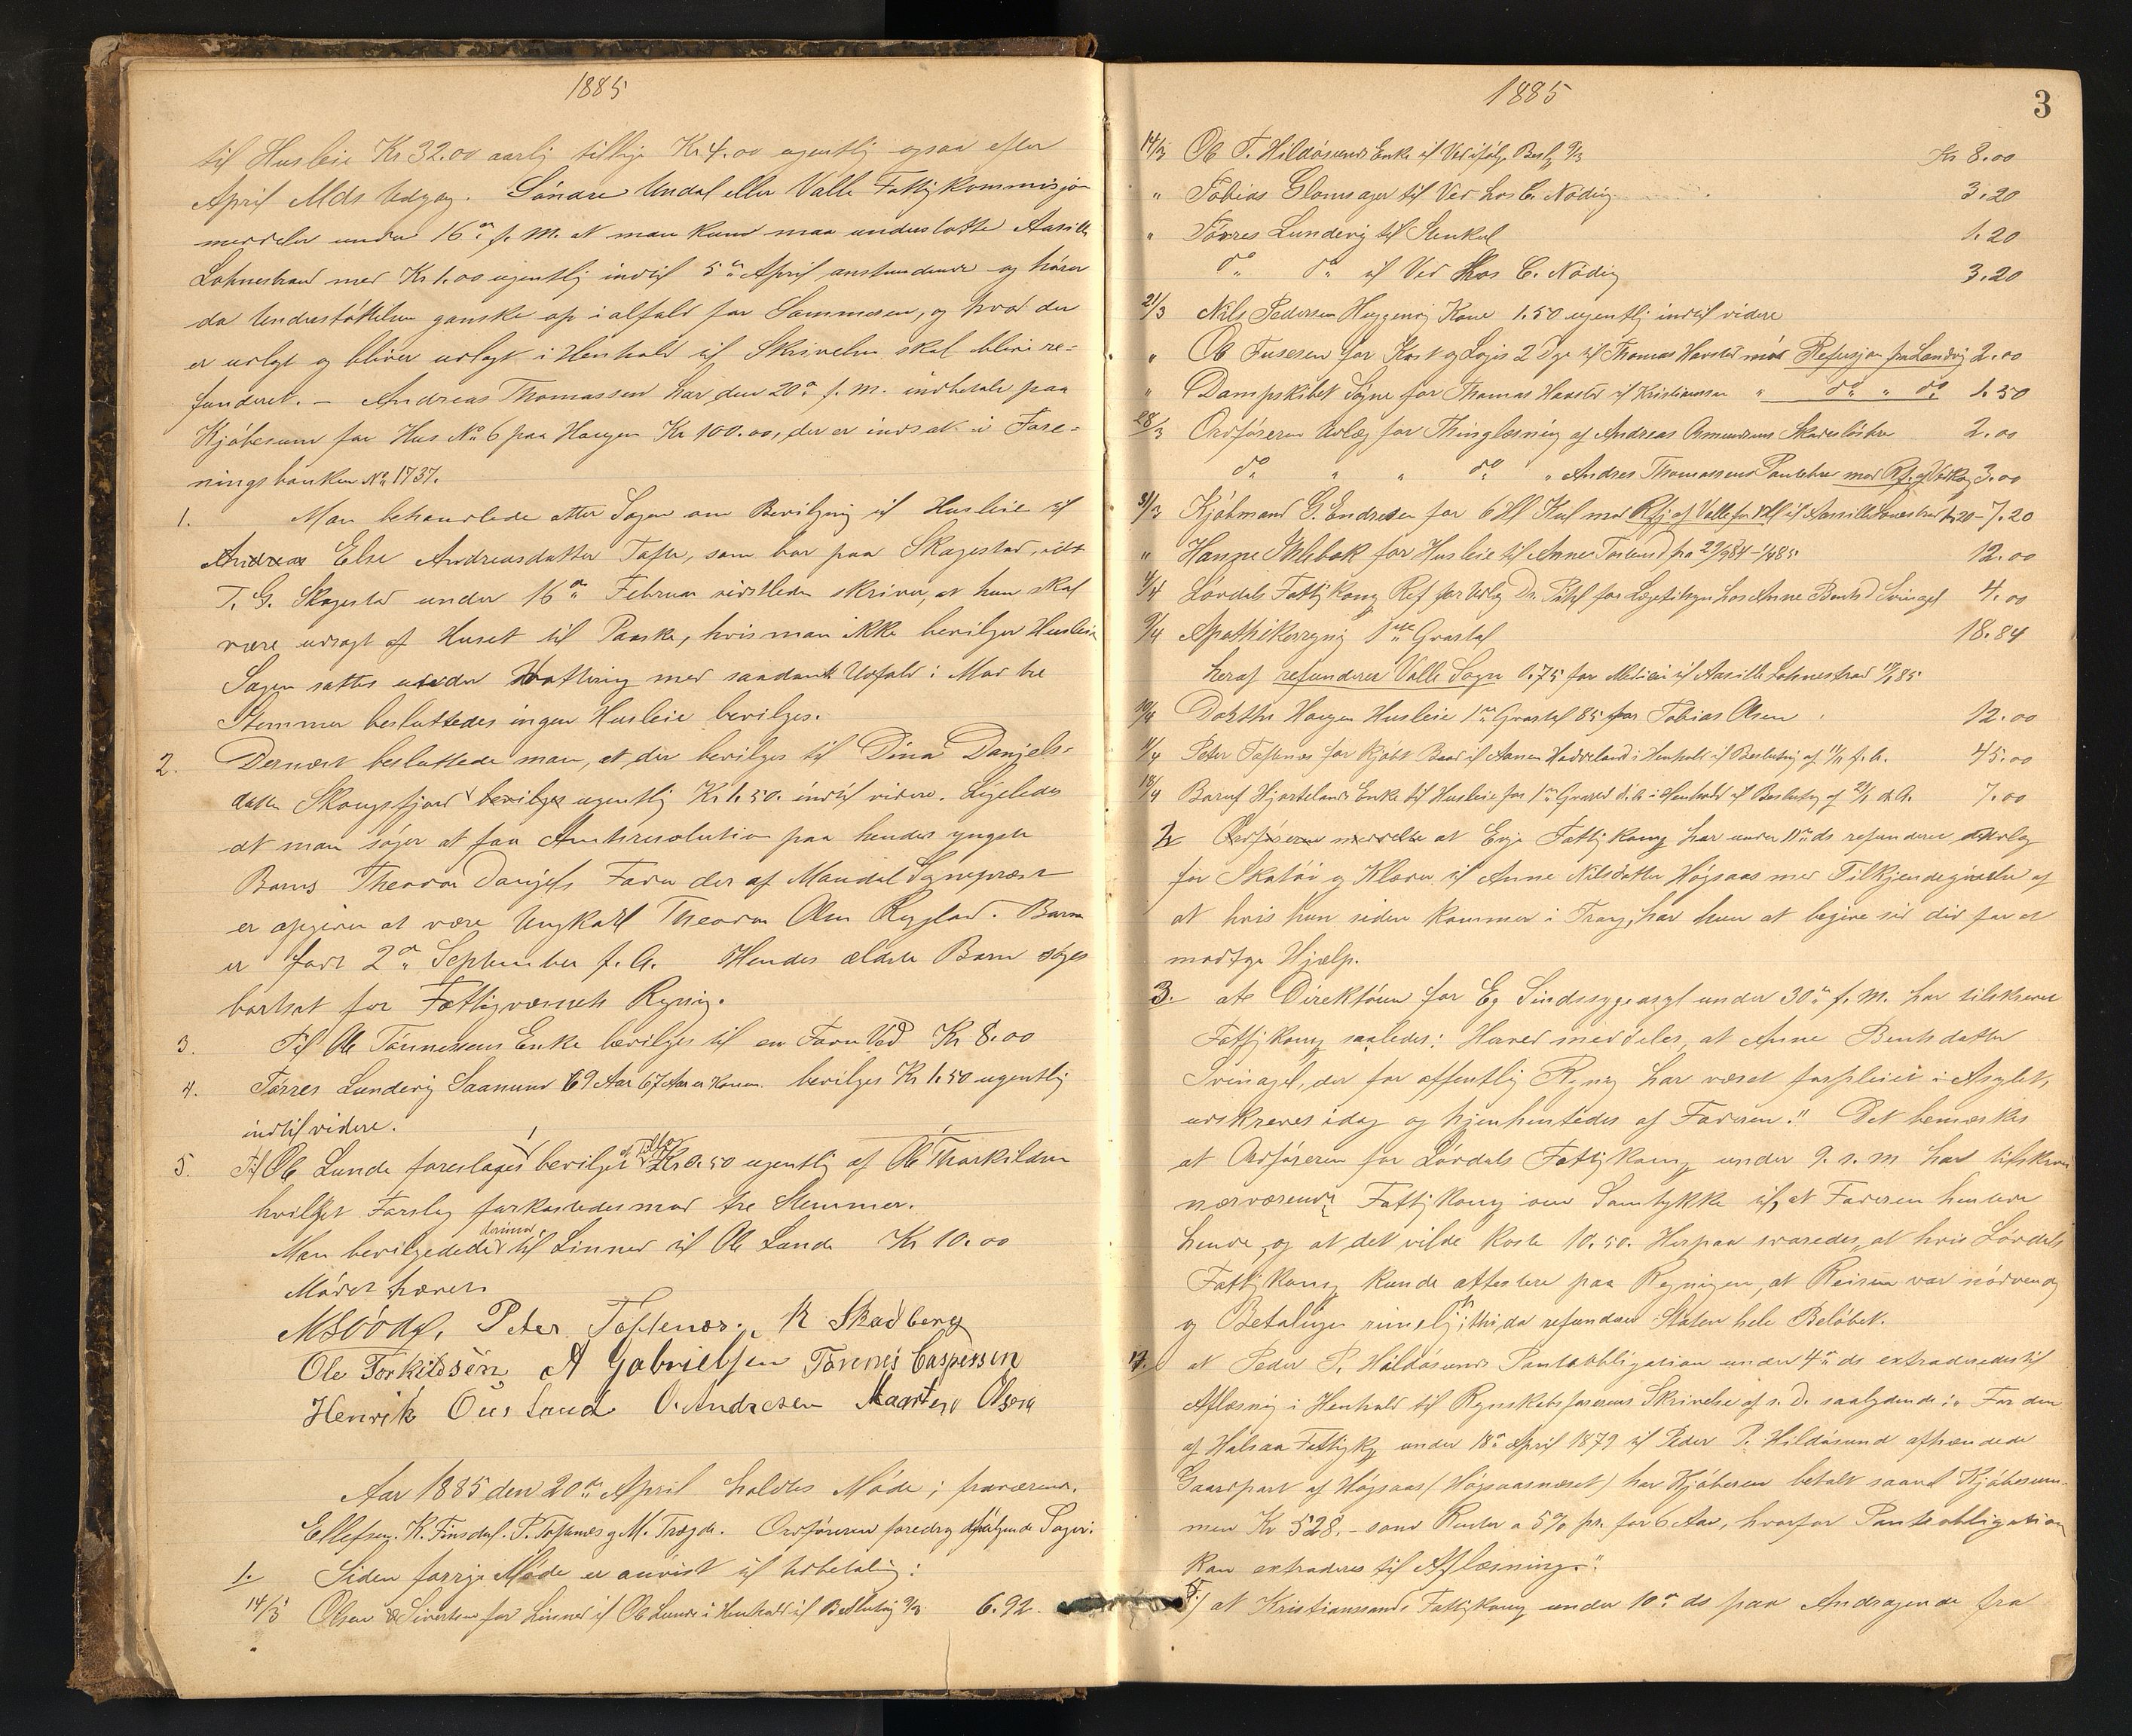 1885
til Husleie Kr 32.00 aarlig tillige Kr 4.00 ugentlig ogsaa efter
April Mds Udgang. Søndre Undal eller Valle Fattigkommission
meddeler under 16de f. M. at man kun maa understøtte Aasille
Lohnestrand med Kr 1.00 ugentlig indtil 5te April anstundende og hører
da Understøttelsen ganske op i alfald for Sommeren, og hvad der
er udlagt og bliver udlagt i Henhold til Skrivelsen skal blive re=
funderet. – Andreas Thomassen har den 20de f. M. indbetalt paa
Kjøbesum for Hus No 6 paa Haugen Kr 100.00, der er indsat i Fore=
ningsbanken No 1737.
1. Man behandlede atter Sagen om Bevilgning til Husleie til
Andreas Else Andreasdatter Tofte, som bor paa Skagestad, idet
T. G. Skagestad under 16de Februar sidstleden skriver, at hun skal
være udsagt af Huset til Paaske, hvis man ikke bevilger Husleie
Sagen sattes under Votering med saadant Udfald: Mod tre
Stemmer besluttedes ingen Husleie bevilges.
2. Dernæst besluttede man, at der bevilges til Dina Danjels=
datter Skougsfjord bevilges ugentlig Kr 1.50. indtil videre. Ligeledes
at man søger at faa Amtsresolution paa hendes yngste
Barns Theodor Danjels Fader der af Mandal Sognepræst
er opgiven at være Ungkarl Theodor Olsen Rygstad. Barnet
er født 2de September f. A. Hendes ældste Barn søges
bortsat for Fattigvæsenets Regning.
3. Til Ole Tønnessens Enke bevilges til en Favn Ved Kr 8.00
4. Tørres Lundevig Saanum 69 Aar 67 Aar er Konen bevilges Kr 1.50 ugentlig
indtil videre.
5. Til Ole Lunde foreslages bevilget et Tillæg Kr 0.50 ugentlig af Ole Thorkildsen
hvilket Forslag forkastedes mod tre Stemmer.
Man bevilgede derimod til Linned til Ole Lunde Kr 10.00
Mødet hævet
Peter Toftenæs. K Skadberg
Ole Torkildsen A Gabrielsen Tønnes Caspersen
Henrik Øusland O. Andresen Maarten Olsen
Aar 1885 den 20de April holdtes Møde; fraværende.
Ellefsen, K. Finsdal. P. Toftenæs og M. Trægde. Ordføreren foredrog følgende Sager:
1. Siden forrige Møde er anvist til Udbetaling:
14/3 Olsen & Sivertsen for Linned til Ole Lunde i Henhold til Beslutning 9/3 6.92.
1885
3
14/3 Ole T. Hildøsunds Enke til Ved ifølge Besl. 9/3 Kr 8.00
„ Tobias Glomsager til Ved hos C. Nøding 3.20
„ Tørres Lundevig til Stenkul 1.20
do do til Ved hos C. Nøding 3.20
21/3 Nils Pedersen Heggenvig Kone 1.50 ugentlig indtil videre
„ Ole Fusesen for Kost og Logis 2 Dage til Thomas Havsted mod Refusjon fra Landvig 2.00
„ Dampskibet Søgne for Thomas Havsted til Kristianssan „ do „ do 1.50
28/3 Ordføreren Udlæg for Thinglæsning af Andreas Osmundsens Skadesløsbrev 2.00
do „ „ do „ Andres Thomassens Pantebrev mod Ref. af Vedkom 3.00
31/3 Kjøbmand G. Endresen for 6 Hl Kul mod Refj af Valle for 1 Hl til Aasille Lonestrand 1.20 – 7.20
„ Hanne Ihlebæk for Husleie til Anne Torlens D fra 29/9 84 – 1/4 85 12.00
4/4 Løvdals Fattigkoms Ref for Udlæg Dr. Pihl for Lægetilsyn hos Anne Bents D Svinagel 4.00
9/4 Apothikerregning 1ste Qvartal 18.84
heraf refunderer Valle Sogn 0.75 for Medicin til Aasille Lohnestrand 85
10/4 Dorthe Haugen Husleie 1ste Qvartal 85 for Tobias Olsen 12.00
11/4 Peter Toftenæs for kjøbt Baad til Aanen Haddeland i Henhold til Beslutning af 11/11 f. A. 45.00
18/4 Baruf Hjortelands Enke til Husleie for 1ste Qvartal d. A. i Henhold til Beslutning af 2/1 d. A. 7.00
2. Ordføreren meddelte at Evje Fattigkoms har under 11te ds refunderet Udlæg
for Skotøi og Klæder til Anne Nilsdatter Høgsaas med Tilkjendegivelse af
at hvis hun siden kommer i Trang, har hun at begive sig did for at
modtage Hjælp.
3. at Direktøren for Eg Sindssygeasyl under 30te f. M. har tilskrevet
Fattigkoms saaledes: „Herved meddeles, at Anne Bentsdatter
Svinagel, der for offentlig Regning har været forpleiet i Asylet,
udskreves idag og hjemhentedes af Faderen." Det bemærkes
at Ordføreren for Løvdals Fattigkoms under 9. s. m har tilskrevet
nærværende Fattigkoms om Samtykke til, at Faderen hentede
hende, og at det vilde koste 10.50. Herpaa svaredes, at hvis Løvdals
Fattigkoms kunde attestere paa Regningen, at Reisen var nødvendig
og Betalingen rimelig, thi da refunderer Staten hele Beløbet.
at Peder P. Hildøsunds Pantobligation under 4de ds extraderedes til
Aflæsning i Henhold til Regnskabsførerens Skrivelse af s. D. saalydende: „For den
af Halsaa Fattigk under 18de April 1879 til Peder P. Hildøsund afhændede
Gaardpart af Høgsaas (Høgsaasneset) har Kjøberen betalt saavel Kjøbesum=
men Kr 528,– som Renter a 5% pr. for 6 Aar, hvorfor Panteobligation
kan extraderes til Aflæsning."
at Kristianssands Fattigkoms under 10de ds paa Andragende fra